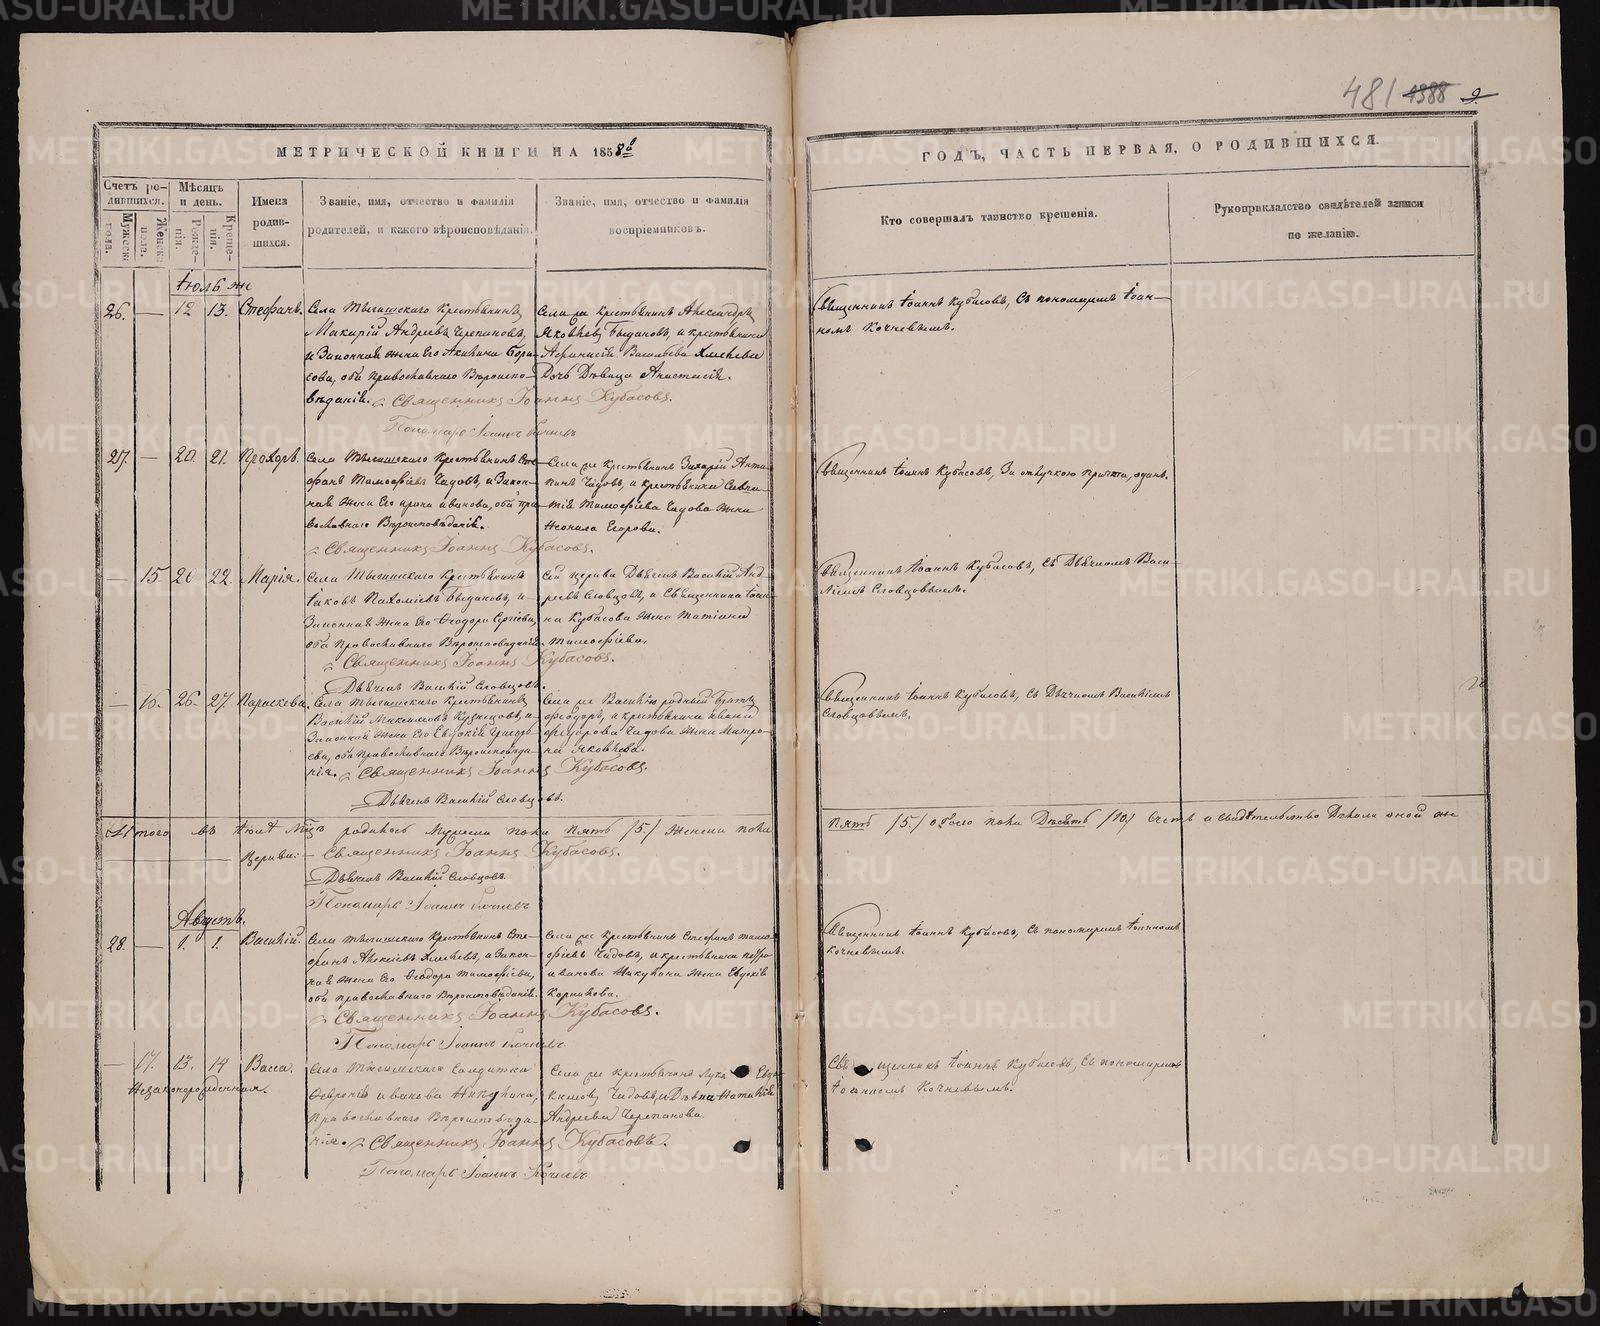 481 1388 9.
МЕТРИЧЕСКОЙ КНИГИ НА 1858й
ГОДЪ, ЧАСТЬ ПЕРВАЯ, О РОДИВШИХСЯ.
Счетъ родившихся.
Мужеска пола.
Женска пола.
Мѣсяцъ и день.
Рожденія.
Крещенія.
Имена родившихся.
Званіе, имя, отчество и фамилія
родителей, и какого вѣроисповѣданія.
Званіе, имя, отчество и фамилія
воспріемниковъ.
Кто совершалъ таинство крещенія.
Рукоприкладство свидѣтелей записи
по желанію.
Іюль
26. — 12 13. Стефанъ.
Села Тыгишскаго Крестьянинъ
Макарій Андреевъ Черепановъ,
и Законная жена Его Акилина Бори-
сова, оба Православнаго Вѣроиспо-
вѣданія.
Села же Крестьянинъ Александръ
Яковлевъ Быдановъ, и крестьянина
Васильева Хмелева
Дочь Дѣвица Анастасія.
Священникъ Іоаннъ Кубасовъ.
Пономарь Іоаннъ Кочневъ
Священникъ Іоаннъ Кубасовъ, Съ пономаремъ Іоан-
номъ Кочневымъ.
27. — 20. 21. Прохоръ.
Села Тыгишскаго Крестьянинъ Сте-
фанъ Тимофѣевъ Чадовъ, и Закон-
ная жена Его Ирина Иванова, оба пра-
вославнаго Вѣроисповѣданія.
Села же Крестьянинъ Захарій Анти-
пинъ Чадовъ, и крестьянина Савва-
тія Тимофѣева Чадова жена
Неонила Егорова.
Священникъ Іоаннъ Кубасовъ.
Священникъ Іоаннъ Кубасовъ, За отлучкою причта, одинъ.
— 15. 20 22. Марія.
Села Тыгишскаго Крестьянинъ
Іаковъ Пахомовъ Быдановъ, и
Законная жена Его Ѳеодора Сергіева,
оба Православнаго Вѣроисповѣданія.
Сей церкви Дьячекъ Василій Анд-
реевъ Словцовъ, и Священника Іоан-
на Кубасова жена Татіана
Тимофѣева.
Священникъ Іоаннъ Кубасовъ.
Дьячекъ Василій Словцовъ.
Священникъ Іоаннъ Кубасовъ, Съ Дьячкомъ Васи-
ліемъ Словцовымъ.
— 16. 26. 27. Параскева.
Села Тыгишскаго Крестьянинъ
Василій Максимовъ Кузнецовъ, и
Законная жена Его Евдокія Григорь-
ева, оба Православнаго Вѣроисповѣда-
нія.
Села же Василію родный Братъ
Ѳеодоръ, и крестьянина Ивана
Федорова Чадова жена Матро-
на Яковлева.
Священникъ Іоаннъ Кубасовъ.
Дьячекъ Василій Словцовъ.
Священникъ Іоаннъ Кубасовъ, Съ Дьячкомъ Василіемъ
Словцовымъ.
Итого въ Іюлѣ М͠цѣ родилось Мужеска пола Пять /5./ Женска пола
Пять /5./ обоего пола Десять /10./
Церкви:
Священникъ Іоаннъ Кубасовъ.
Дьячекъ Василій Словцовъ.
Пономарь Іоаннъ Кочневъ
Августъ.
28. — 1. 1. Василій.
Села Тыгишскаго Крестьянинъ Сте-
фанъ Алексіевъ Хмелевъ, и Закон-
ная жена Его Ѳеодора Тимофѣева,
оба православнаго Вѣроисповѣданія.
Села же Крестьянинъ Стефанъ Тимо-
фѣевъ Чадовъ, и крестьянина Петра
Иванова Никулина жена Евдокія
Корнилова.
Священникъ Іоаннъ Кубасовъ.
Пономарь Іоаннъ Кочневъ
Священникъ Іоаннъ Кубасовъ, Съ пономаремъ Іоанномъ
Кочневымъ.
— 17. 13. 14 Васса.
Незаконнорожденная.
Села Тыгишскаго Солдатка
Февронія Иванова Никулина,
Православнаго Вѣроисповѣда-
нія.
Села же Крестьянинъ Лука Евдо-
кимовъ Чадовъ, и Дѣвица Наталія
Андреева Черепанова.
Священникъ Іоаннъ Кубасовъ.
Пономарь Іоаннъ Кочневъ
Священникъ Іоаннъ Кубасовъ, Съ пономаремъ
Іоанномъ Кочневымъ.
METRIKI.GASO-URAL.RU